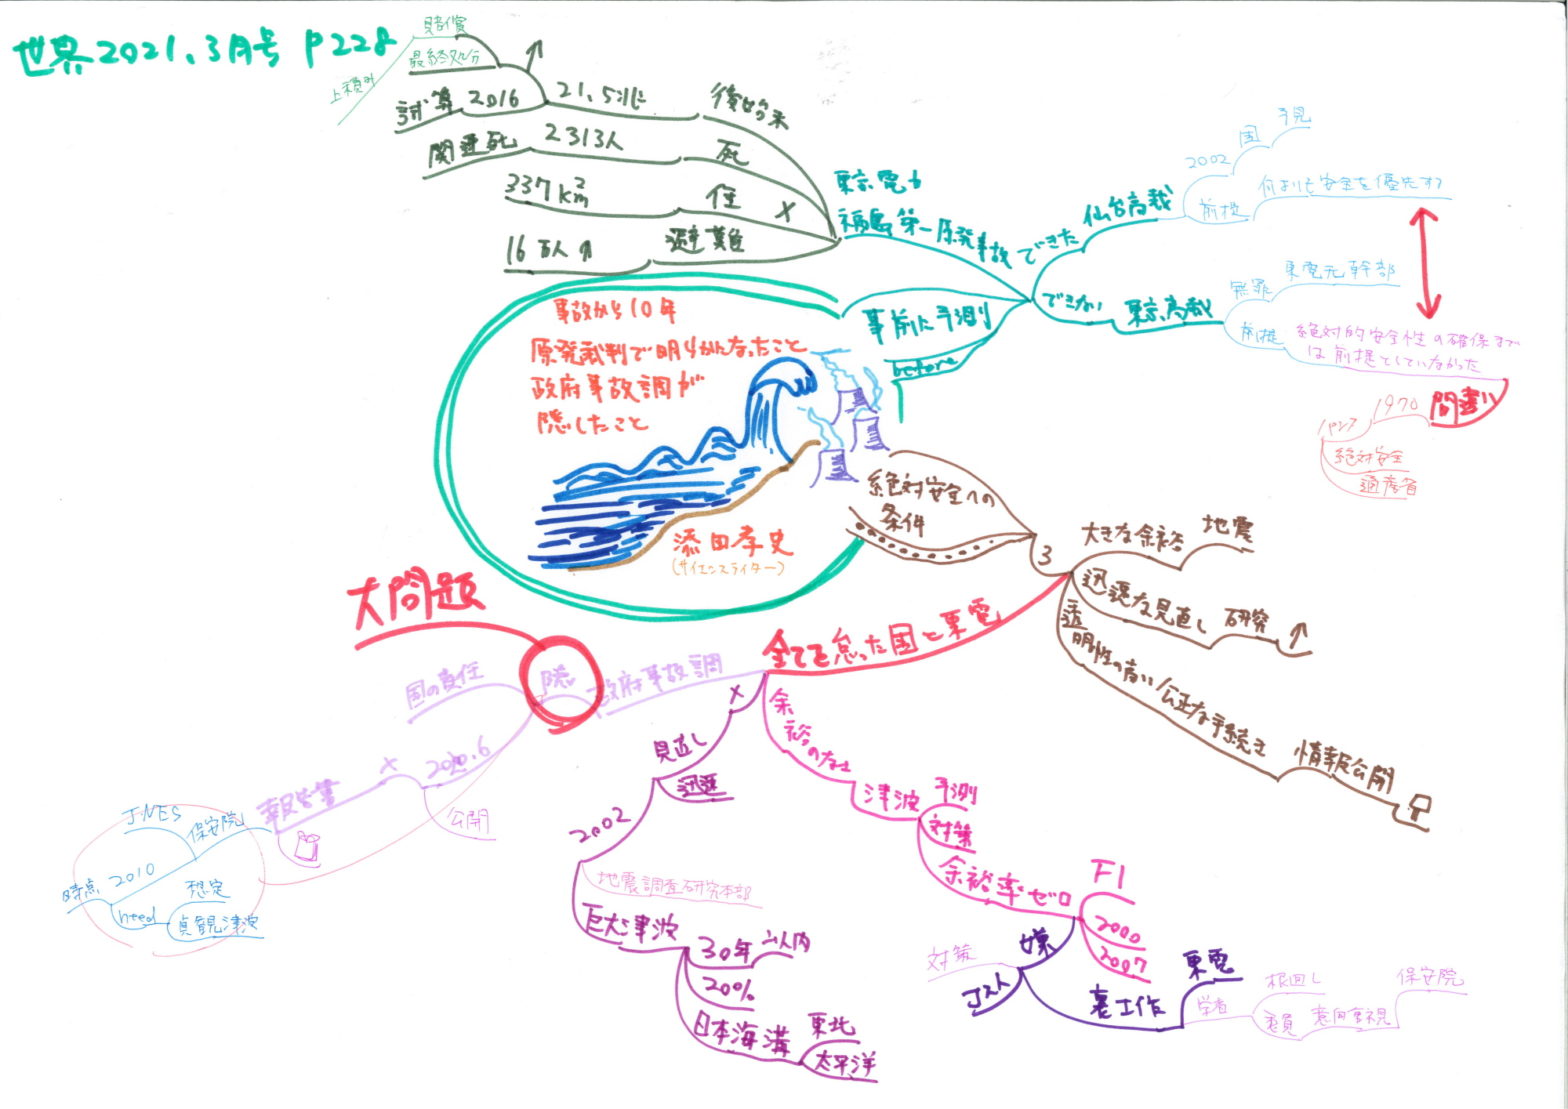 世界2021.3月号 P228
賠償
最終処分
上積み
試算 2016
21.5兆
後始末
関連死
2313人
死
337km²
住 ×
16万人
避難
東京電力
福島第一原発事故
事前に予測
before
できた
仙台高裁
2002 国 予見
前提 何よりも安全を優先する
できない
東京高裁
無罪 東電元幹部
前提 絶対的安全性の確保まで
は前提としていなかった
間違い
1970
パンフ
絶対安全
事故から10年
原発裁判で明らかになったこと
政府事故調が
隠したこと
添田孝史
(サイエンスライター)
絶対安全への
条件
3
大きな余裕 地震
迅速な見直し 研究
透明性の高い/公正な手続き 情報公開
全てを怠った国と東電
大問題
隠
国の責任
政府事故調
公開
報告書 ×
JNES 保安院
時点 2010
need
想定
貞観津波
×
見直し
迅速
2002
地震調査研究本部
巨大津波
30年以内
20%
日本海溝
東北
太平洋
余裕のなさ
津波
予測
対策
余裕率ゼロ
F1
2000
2007
嫌
対策
コスト
裏工作
東電
学者
根回し
意向重視
保安院